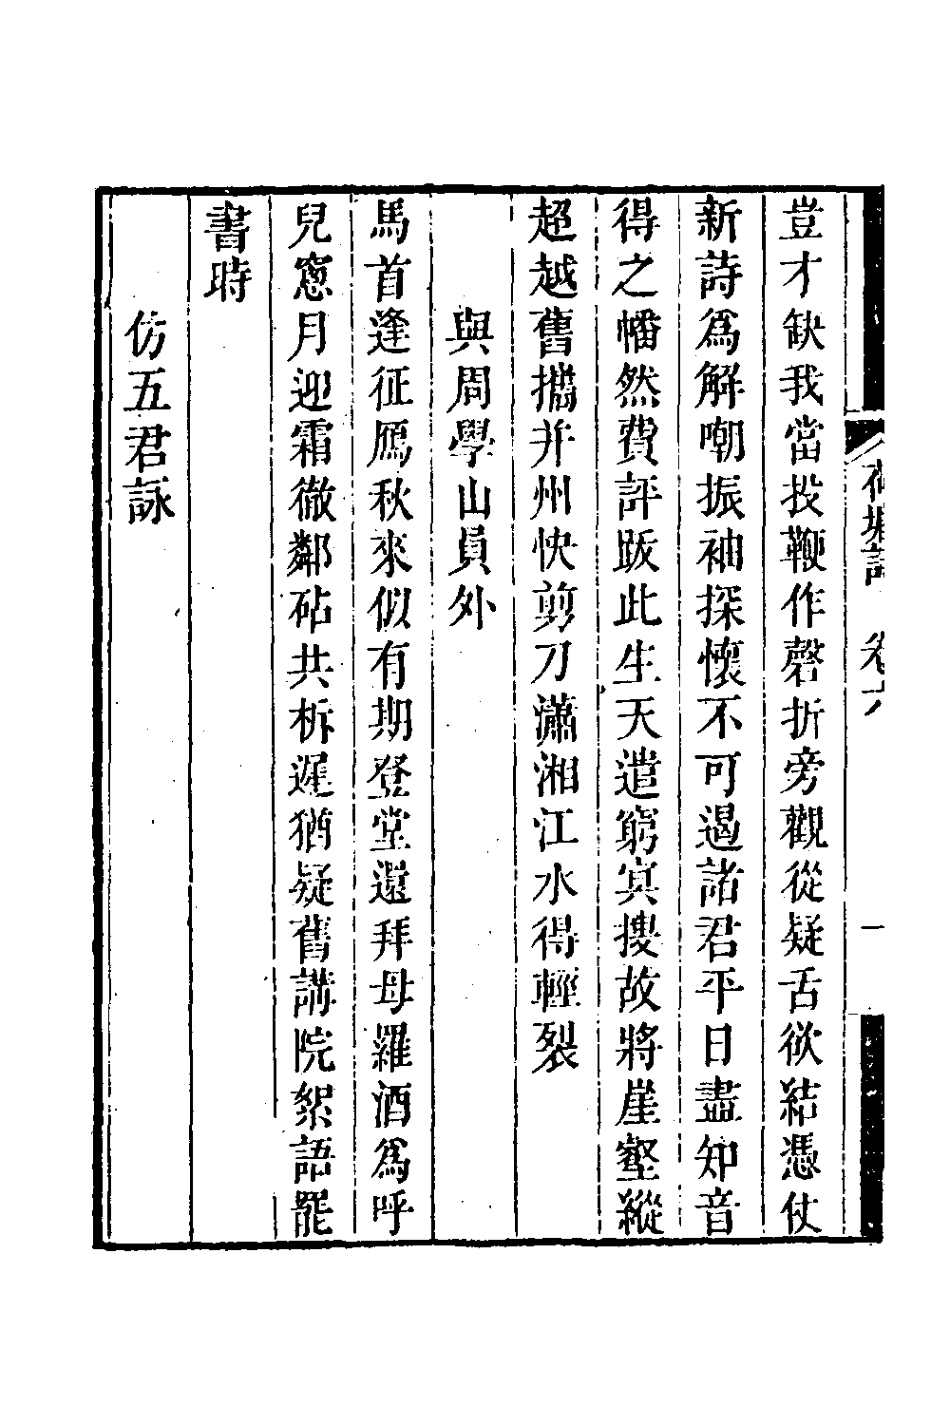 豈才缺我當投鞭作磬折旁觀從疑舌欲結憑仗
新詩爲解嘲振袖探懷不可遏諸君平日盡知音
得之幡然費評跋此生天遣窮冥搜故將崖壑縱
超越舊攜并州快剪刀瀟湘江水得輕裂
與周學山員外
馬首逢征鴈秋來似有期登堂還拜母羅酒爲呼
兒窻月迎霜徹鄰砧共柝遲猶疑舊講院絮語罷
書時
仿五君詠